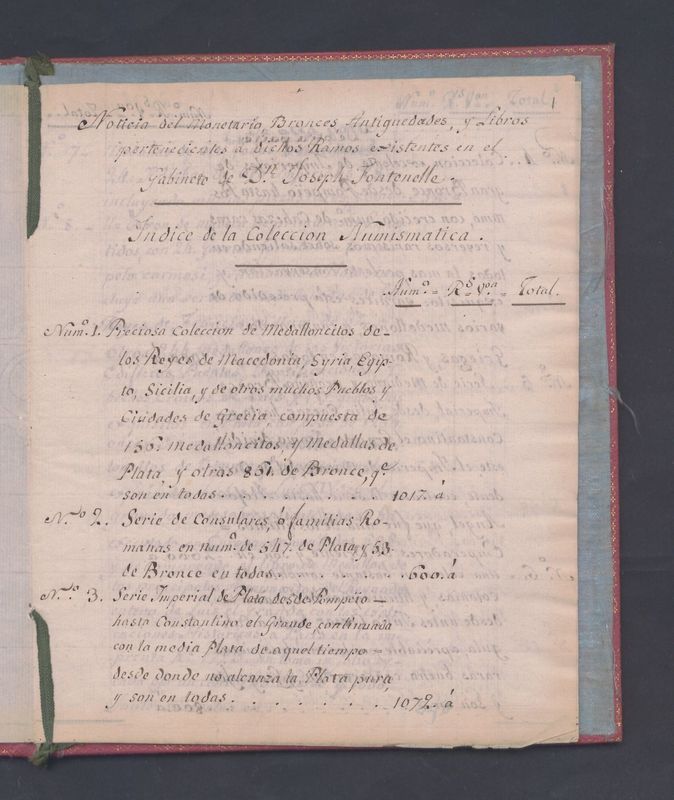 1
Noticia del Monetario, Bronces Antiguedades, y Libros
pertenecientes a dichos Ramos existentes en el
Gabinete de Dn. Joseph Fontenelle.
Indice de la Coleccion Numismatica.
Numo. = Rs. Von. = Total.
Numo. 1. Preciosa Coleccion de Medalloncitos de-
los Reyes de Macedonia, Syria, Egip-
to, Sicilia, y de otros muchos Pueblos y
Ciudades de Grecia, compuesta de
156. Medalloncitos, y Medallas de
Plata, y otras 861. de Bronce, qe.
son en todas . . . . 1017. á
N.ro 2. Serie de Consulares, ó familias Ro-
manas en numo. de 547. de Plata, y 53.
de Bronce en todas . . . 600. á
N.ro 3. Serie Imperial de Plata desde Pompeio -
hasta Constantino el Grande, continuada
con la media Plata de aquel tiempo =
desde donde no alcanza la Plata pura,
y son en todas . . . . . . . . 1072. á